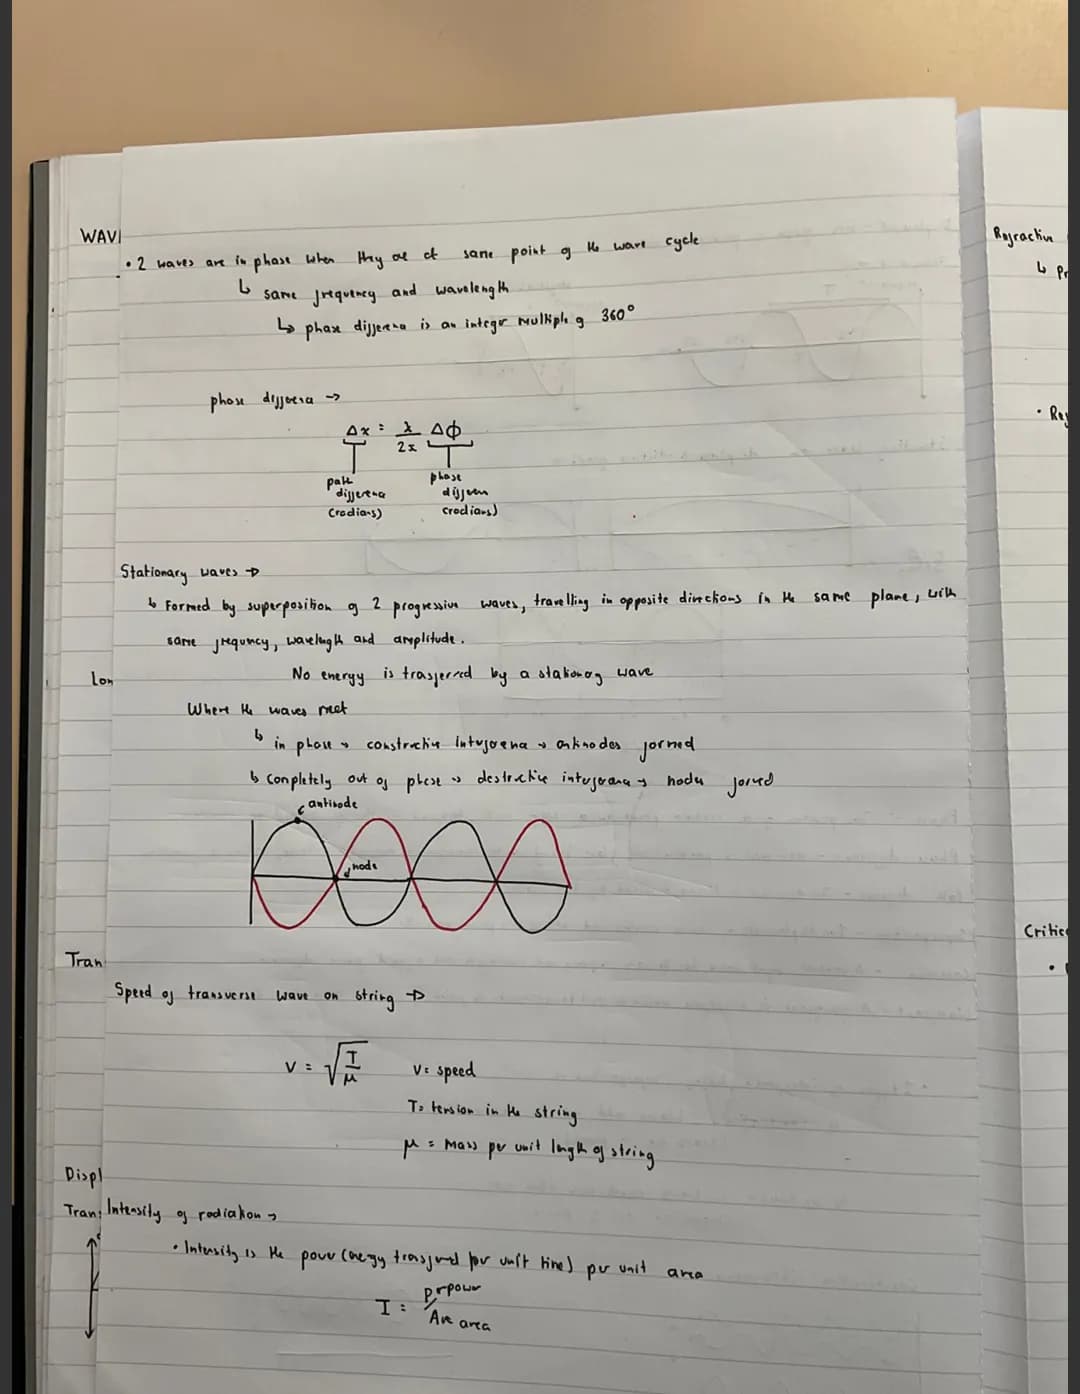 WAV
• 2 waves are in phase when they are at same point of the wave cycle
↳ same frequency and wavelength
↳ phase difference is an integer multiple of 360°
phase difference →
Δx = λ/2x Δϕ
path difference (radians)
phase differen (radians)
Stationary waves →
↳ Formed by superposition of 2 progressive waves, travelling in opposite directions in the same plane, with
same frequency, wavelength and amplitude.
No energy is trasferred by a stationary wave
Where the waves meet
↳ in phase → constructive interference → antinodes formed
↳ completely out of phase → destructive interference → nodes formed
antinode
node
Speed of transverse wave on string →
v = √T/μ
v = speed
T = tension in the string
μ = mass per unit length of string
Intensity of radiation →
• Intensity is the power (energy transferred per unit time) per unit area
I = P/A
P → power
A → area
Lon
Tran
Displ
Trans
Refractive
↳ Pr
• Re
Critic
•